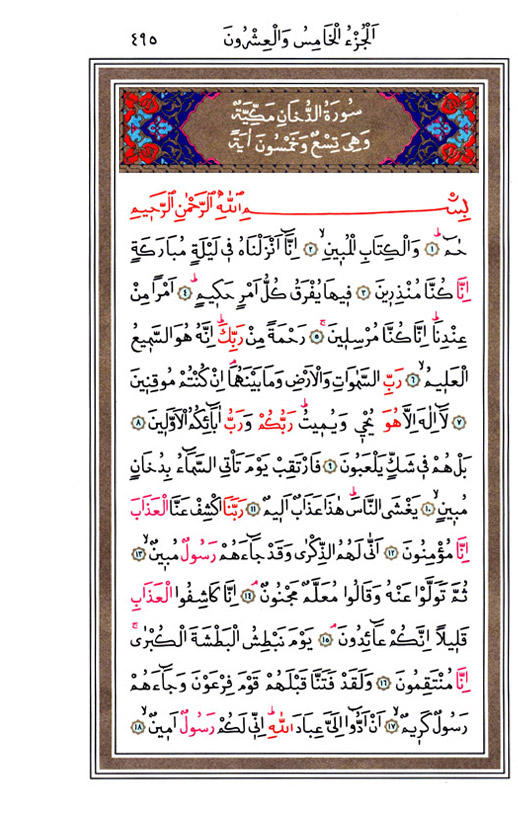 اَلْجُزْءُ الْخَامِسُ وَالْعِشْرُونَ ٤٩٥
سُورَةُ الدُّخَانِ مَكِّيَّةٌ
وَهِيَ تِسْعٌ وَخَمْسُونَ اٰيَةً
بِسْمِ اللّٰهِ الرَّحْمٰنِ الرَّحِيمِ
حٰمٓ ۜ ﴿١﴾ وَالْكِتَابِ الْمُبِينِ ۙ ﴿٢﴾ اِنَّٓا اَنْزَلْنَاهُ فِي لَيْلَةٍ مُبَارَكَةٍ
اِنَّا كُنَّا مُنْذِرِينَ ﴿٣﴾ فِيهَا يُفْرَقُ كُلُّ اَمْرٍ حَكِيمٍ ۜ ﴿٤﴾ اَمْرًا مِنْ
عِنْدِنَا ۜ اِنَّا كُنَّا مُرْسِلِينَ ۚ ﴿٥﴾ رَحْمَةً مِنْ رَبِّكَ ۜ اِنَّهُ هُوَ السَّمِيعُ
الْعَلِيمُ ۙ ﴿٦﴾ رَبِّ السَّمٰوَاتِ وَالْاَرْضِ وَمَا بَيْنَهُمَا ۢ اِنْ كُنْتُمْ مُوقِنِينَ
﴿٧﴾ لَٓا اِلٰهَ اِلَّا هُوَ يُحْيِي وَيُمِيتُ ۜ رَبُّكُمْ وَرَبُّ اٰبَٓائِكُمُ الْاَوَّلِينَ ﴿٨﴾
بَلْ هُمْ فِي شَكٍّ يَلْعَبُونَ ﴿٩﴾ فَارْتَقِبْ يَوْمَ تَأْتِي السَّمَٓاءُ بِدُخَانٍ
مُبِينٍ ۙ ﴿١٠﴾ يَغْشَى النَّاسَ ۜ هٰذَا عَذَابٌ اَلِيمٌ ﴿١١﴾ رَبَّنَا اكْشِفْ عَنَّا الْعَذَابَ
اِنَّا مُؤْمِنُونَ ﴿١٢﴾ اَنّٰى لَهُمُ الذِّكْرٰى وَقَدْ جَٓاءَهُمْ رَسُولٌ مُبِينٌ ۙ ﴿١٣﴾
ثُمَّ تَوَلَّوْا عَنْهُ وَقَالُوا مُعَلَّمٌ مَجْنُونٌ ۢ ﴿١٤﴾ اِنَّا كَاشِفُوا الْعَذَابِ
قَلِيلًا اِنَّكُمْ عَٓائِدُونَ ۢ ﴿١٥﴾ يَوْمَ نَبْطِشُ الْبَطْشَةَ الْكُبْرٰى ۚ
اِنَّا مُنْتَقِمُونَ ﴿١٦﴾ وَلَقَدْ فَتَنَّا قَبْلَهُمْ قَوْمَ فِرْعَوْنَ وَجَٓاءَهُمْ
رَسُولٌ كَرِيمٌ ۙ ﴿١٧﴾ اَنْ اَدُّٓوا اِلَيَّ عِبَادَ اللّٰهِ ۜ اِنِّي لَكُمْ رَسُولٌ اَمِينٌ ۙ ﴿١٨﴾